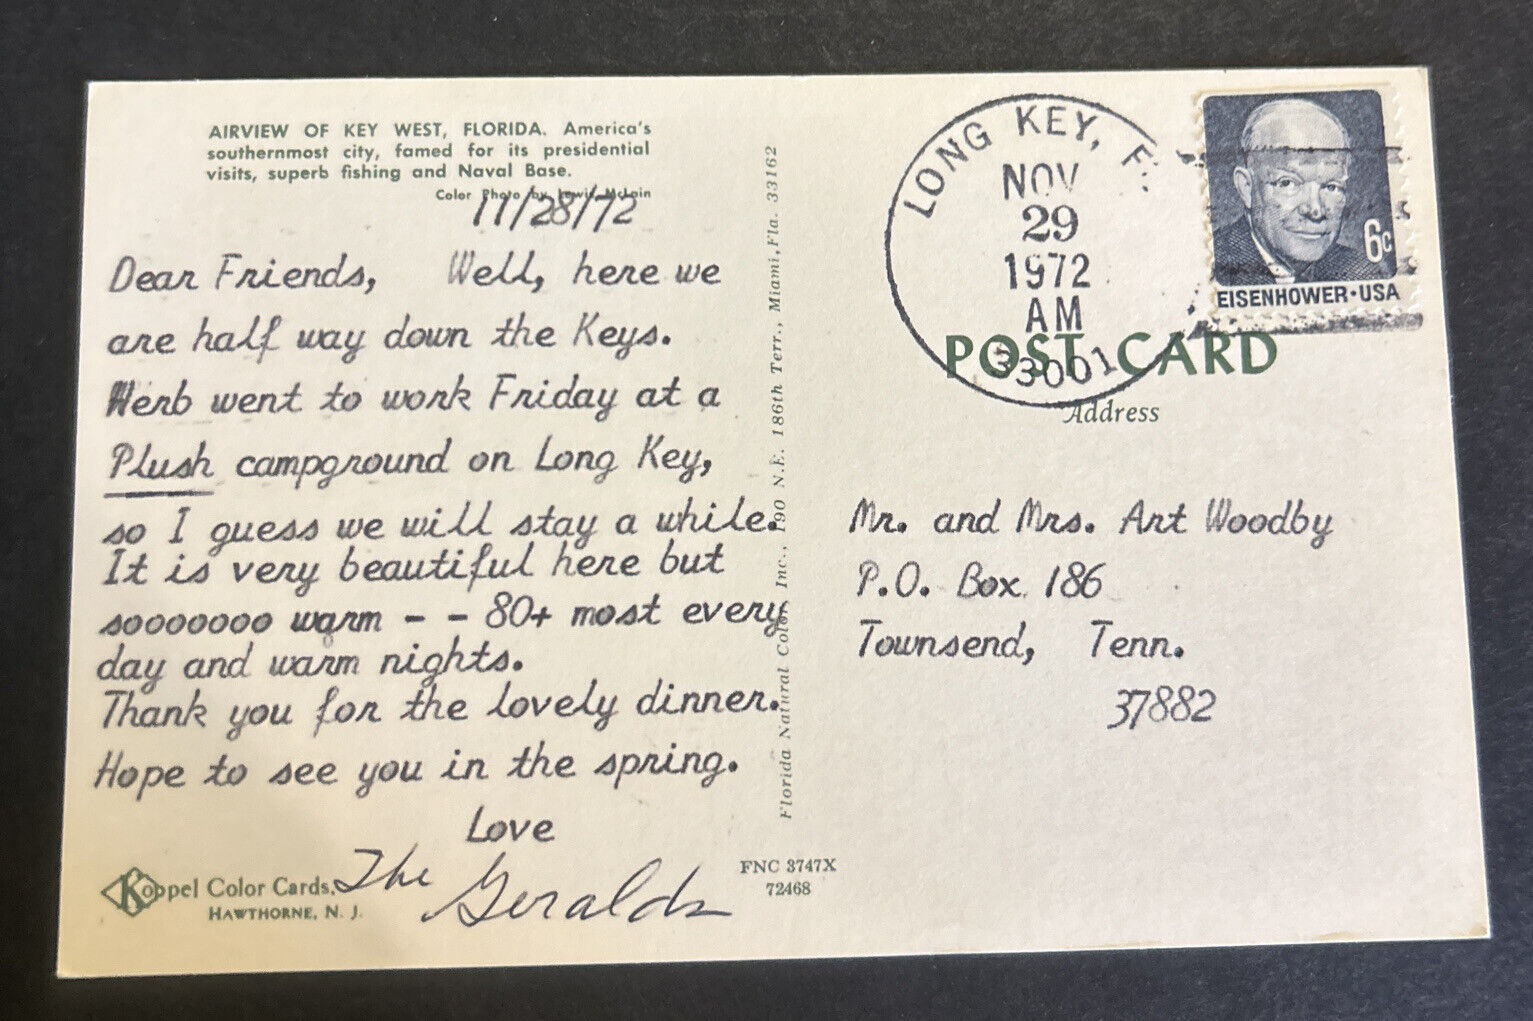 AIRVIEW OF KEY WEST, FLORIDA. America's
southernmost city, famed for its presidential
visits, superb fishing and Naval Base.
Color Photo by Lewis McLain
11/28/72
Dear Friends, Well, here we
are half way down the Keys.
Herb went to work Friday at a
Plush campground on Long Key,
so I guess we will stay a while.
It is very beautiful here but
soooooooo warm - - 80+ most every
day and warm nights.
Thank you for the lovely dinner.
Hope to see you in the spring.
Love
The Geralds
Koppel Color Cards,
HAWTHORNE, N. J.
Florida Natural Color, Inc., 190 N.E. 186th Terr., Miami, Fla. 33162
FNC 3747X
72468
LONG KEY, F
NOV
29
1972
AM
33001
6c
EISENHOWER·USA
POST CARD
Address
Mr. and Mrs. Art Woodby
P.O. Box 186
Townsend, Tenn.
37882